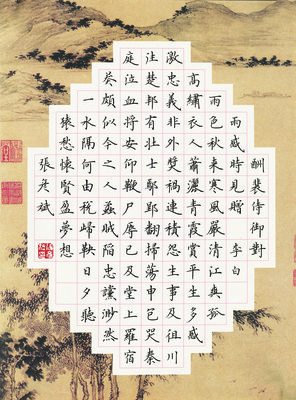 酬裴侍御對
雨感時見贈 李白
雨色秋來寒風嚴清江爽孤
高繡衣人蕭灑青霞賞平生多感
激忠義非外獎禍連積怨生事及徂川
往楚邦有壯士鄢郢翻掃蕩申包哭秦
庭泣血將安仰鞭尸辱已及堂上羅宿
莽頗似今之人蟊賊陷忠讜渺然
一水隔何由稅歸鞅日夕聽
猿愁懷賢盈夢想
張彥斌